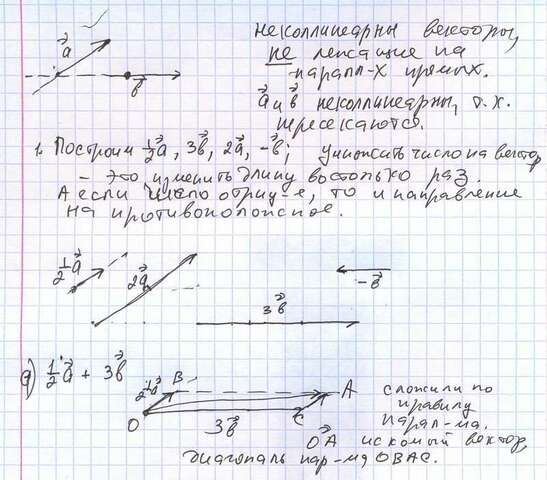 Неколлинеарны векторы,
не лежащие на
a⃗
парал-х прямых.
b⃗
a⃗ и b⃗ неколлинеарны, т.к.
пересекаются.
1. Построим ½a⃗, 3b⃗, 2a⃗, -b⃗; умножить число на вектор
- это изменить длину во столько раз.
А если число отриц-е, то и направление
на противоположное.
½a⃗
2a⃗
-b⃗
3b⃗
а) ½a⃗ + 3b⃗
½a⃗
B
A
O
3b⃗
C
сложили по
правилу
парал-ма.
OA⃗ искомый вектор,
диагональ пар-ма OBAC.